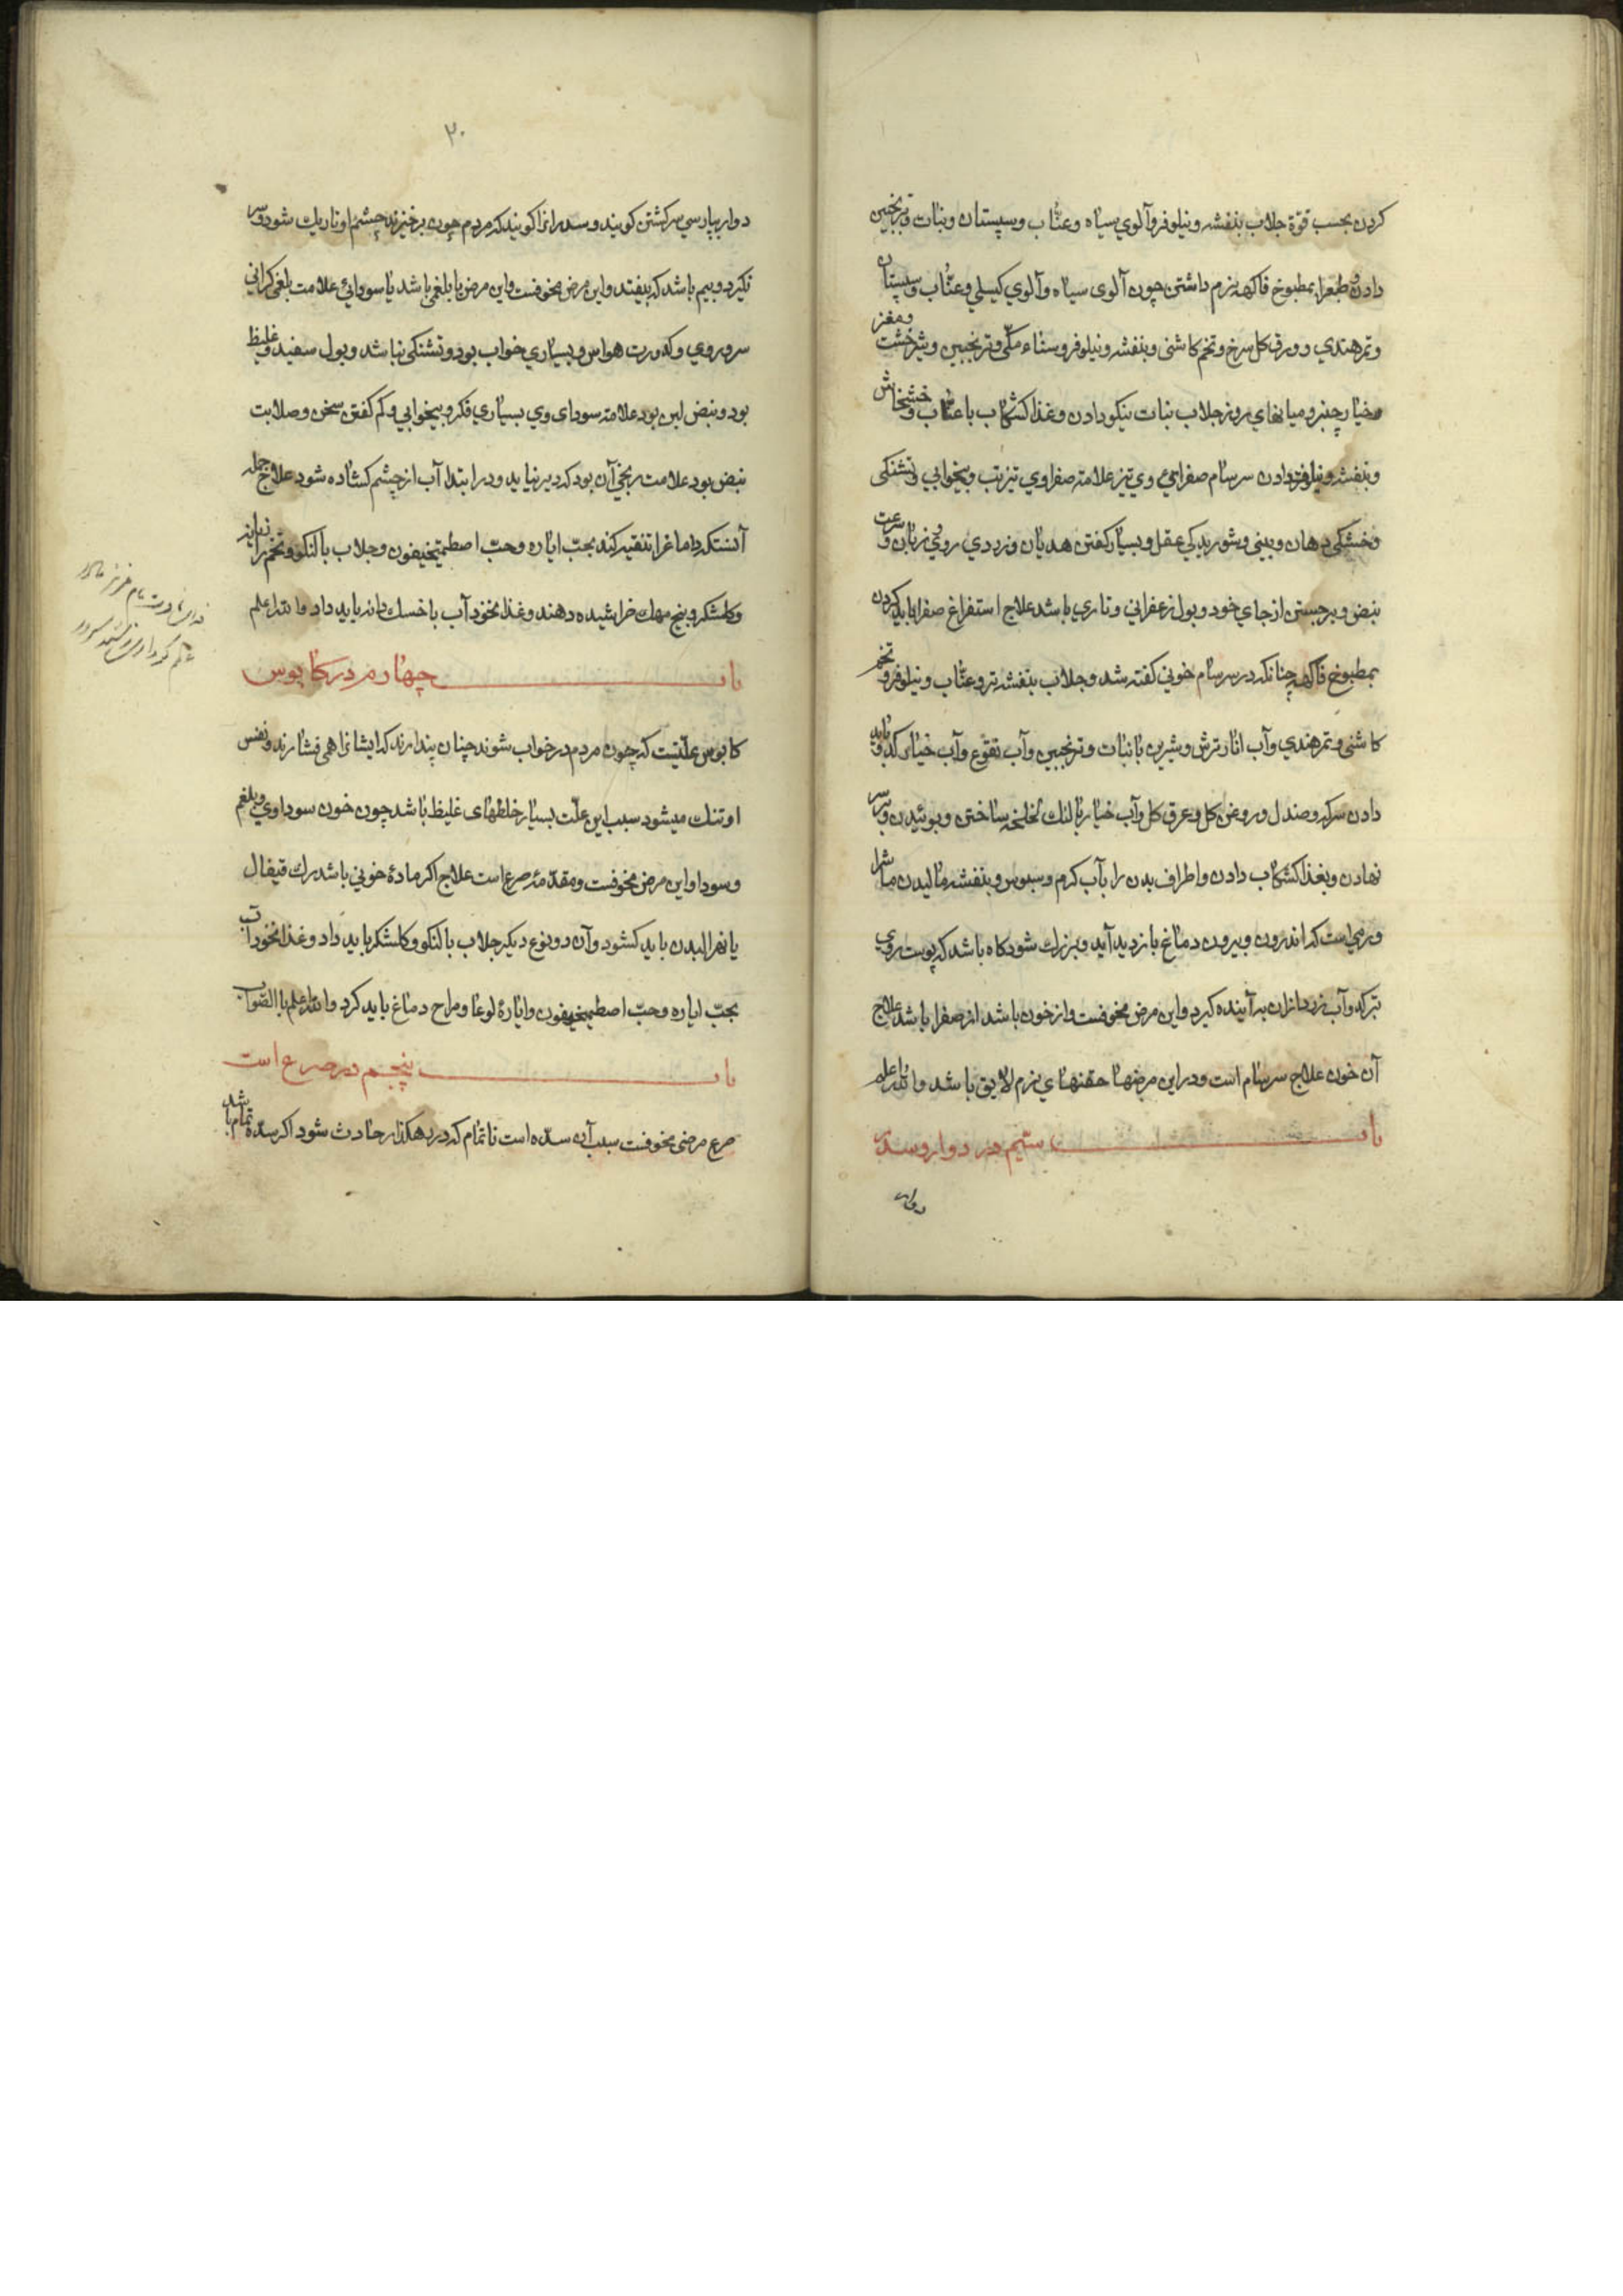 کردن بحسب قوّة جلاب بنفشه و نیلوفر و آلوی سیاه و عنّاب و سپستان و نبات و ترنجبین
دادن و طبع را بمطبوخ فاکهه نرم داشتن چون آلوی سیاه و آلوی کیلی و عنّاب و سپستان
و تمر هندی و ورق کل سرخ و تخم کاشنی و بنفشه و نیلوفر و سناء مکّی و ترنجبین و شیرخشت و مغز
خیار چنبر و میانهای روز جلاب نبات نیکو دادن و غذا کشکاب با عنّاب و خشخاش
و بنفشه و نیلوفر دادن سرسام صفرائی وی تیز علامة صفراوی تیز تب و بیخوابی و تشنکی
و خشکی دهان و بینی و شوریدکی عقل و بسیار کفتن هدیان و زردی روی و زبان و سرعت
نبض و برجستن از جای خود و بول زعفرانی و ناری باشد علاج استفراغ صفرا باید کردن
بمطبوخ فاکهه چنانکه در سرسام خونی کفته شد و جلاب بنفشه تر و عنّاب و نیلوفر و تخم
کاشنی و تمر هندی و آب انار ترش و شیرین با نبات و ترنجبین و آب نقوع و آب خیار کدو باید
دادن سرکه و صندل و روغن کل و عرق کل و آب خیار بالنك لخلخه ساختن و بوئیدن و بر سر
نهادن و بغذا کشکاب دادن و اطراف بدن را بآب کرم و سبوس و بنفشه مالیدن ماشرا
ورمی است که اندرون و بیرون دماغ بازدید آید و بزرك شود کاه باشد که پوست روی
بترکد و آب زرد ازان بدآینده کیرد و این مرض مخوفست و از خون باشد از صفرا باشد علاج
آن خون علاج سرسام است و در این مرضها حقنهای نرم لایق باشد والله اعلم
باب سیّم در دوار و سدر
دوار
۲۰
دوار بپارسی سرکشتن کویند و سدر انرا کویند که مردم چون برخیزند چشم او تاریك شود و سر
نکیرد و بیم باشد که بیفتد و این مرض مخوفست و این مرض یا بلغمی باشد یا سودائی علامت بلغمی کرانی
سر و روی و کدورت حواس و بسیاری خواب بود و تشنکی نباشد و بول سفید و غلیظ
بود و نبض لین بود علامة سودای وی بسیاری فکر و بیخوابی و کم کفتن سخن و صلابت
نبض بود علامت ریحی آن بود که دیر نپاید و در ابتدا آب از چشم کشاده شود علاج جمله
آنستکه دماغ را تنقیه کنند بحبّ ایاره و حبّ اصطمخیقون و جلاب بالنکو و تخم رازیانه
و کلشکر و بیخ مهك خراشیده دهند و غذا نخود آب با خسك دانه باید داد والله اعلم
باب چهارم در کابوس
کابوس علّتیست که چون مردم در خواب شوند چنان پندارند که ایشانرا همی فشارند و نفس
او تنك میشود سبب این علّت بسیار خلطهای غلیظ باشد چون خون سوداوی و بلغم
و سودا و این مرض مخوفست و مقدّمۀ صرع است علاج اکر مادۀ خونی باشد رك قیفال
یا نهر البدن باید کشود و آن دو نوع دیکر جلاب بالنکو و کلشکر باید داد و غذا نخود آب
بحبّ ایاره و حبّ اصطمخیقون و ایارۀ لوغا و مزاج دماغ باید کرد والله اعلم بالصّواب
باب پنجم در صرع است
صرع مرضی مخوفست سبب آن سدّه است ناتمام که در رهکذار حادث شود اکر سدّه تمام باشد